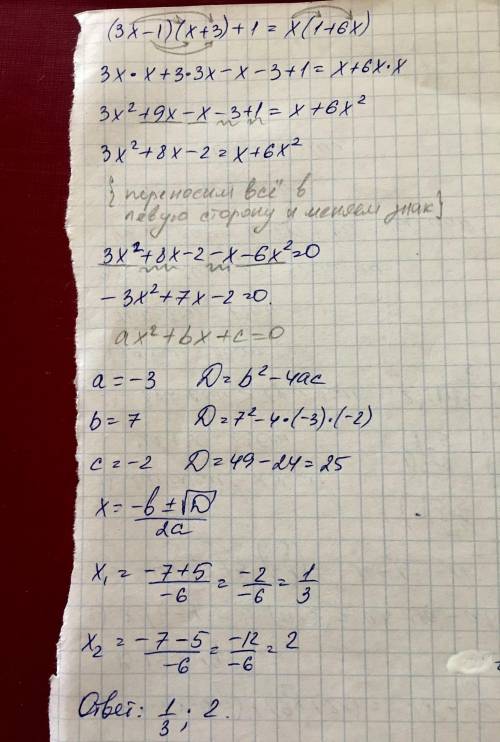 (3x-1)(x+3)+1=x(1+6x)
3x•x+3•3x-x-3+1=x+6x•x
3x²+9x-x-3+1=x+6x²
3x²+8x-2=x+6x²
{переносим всё в
левую сторону и меняем знак}
3x²+8x-2-x-6x²=0
-3x²+7x-2=0.
ax²+bx+c=0
a=-3 D=b²-4ac
b=7 D=7²-4•(-3)•(-2)
c=-2 D=49-24=25
x=-b±√D/2a
x₁=-7+5/-6=-2/-6=1/3
x₂=-7-5/-6=-12/-6=2
Ответ: 1/3; 2.